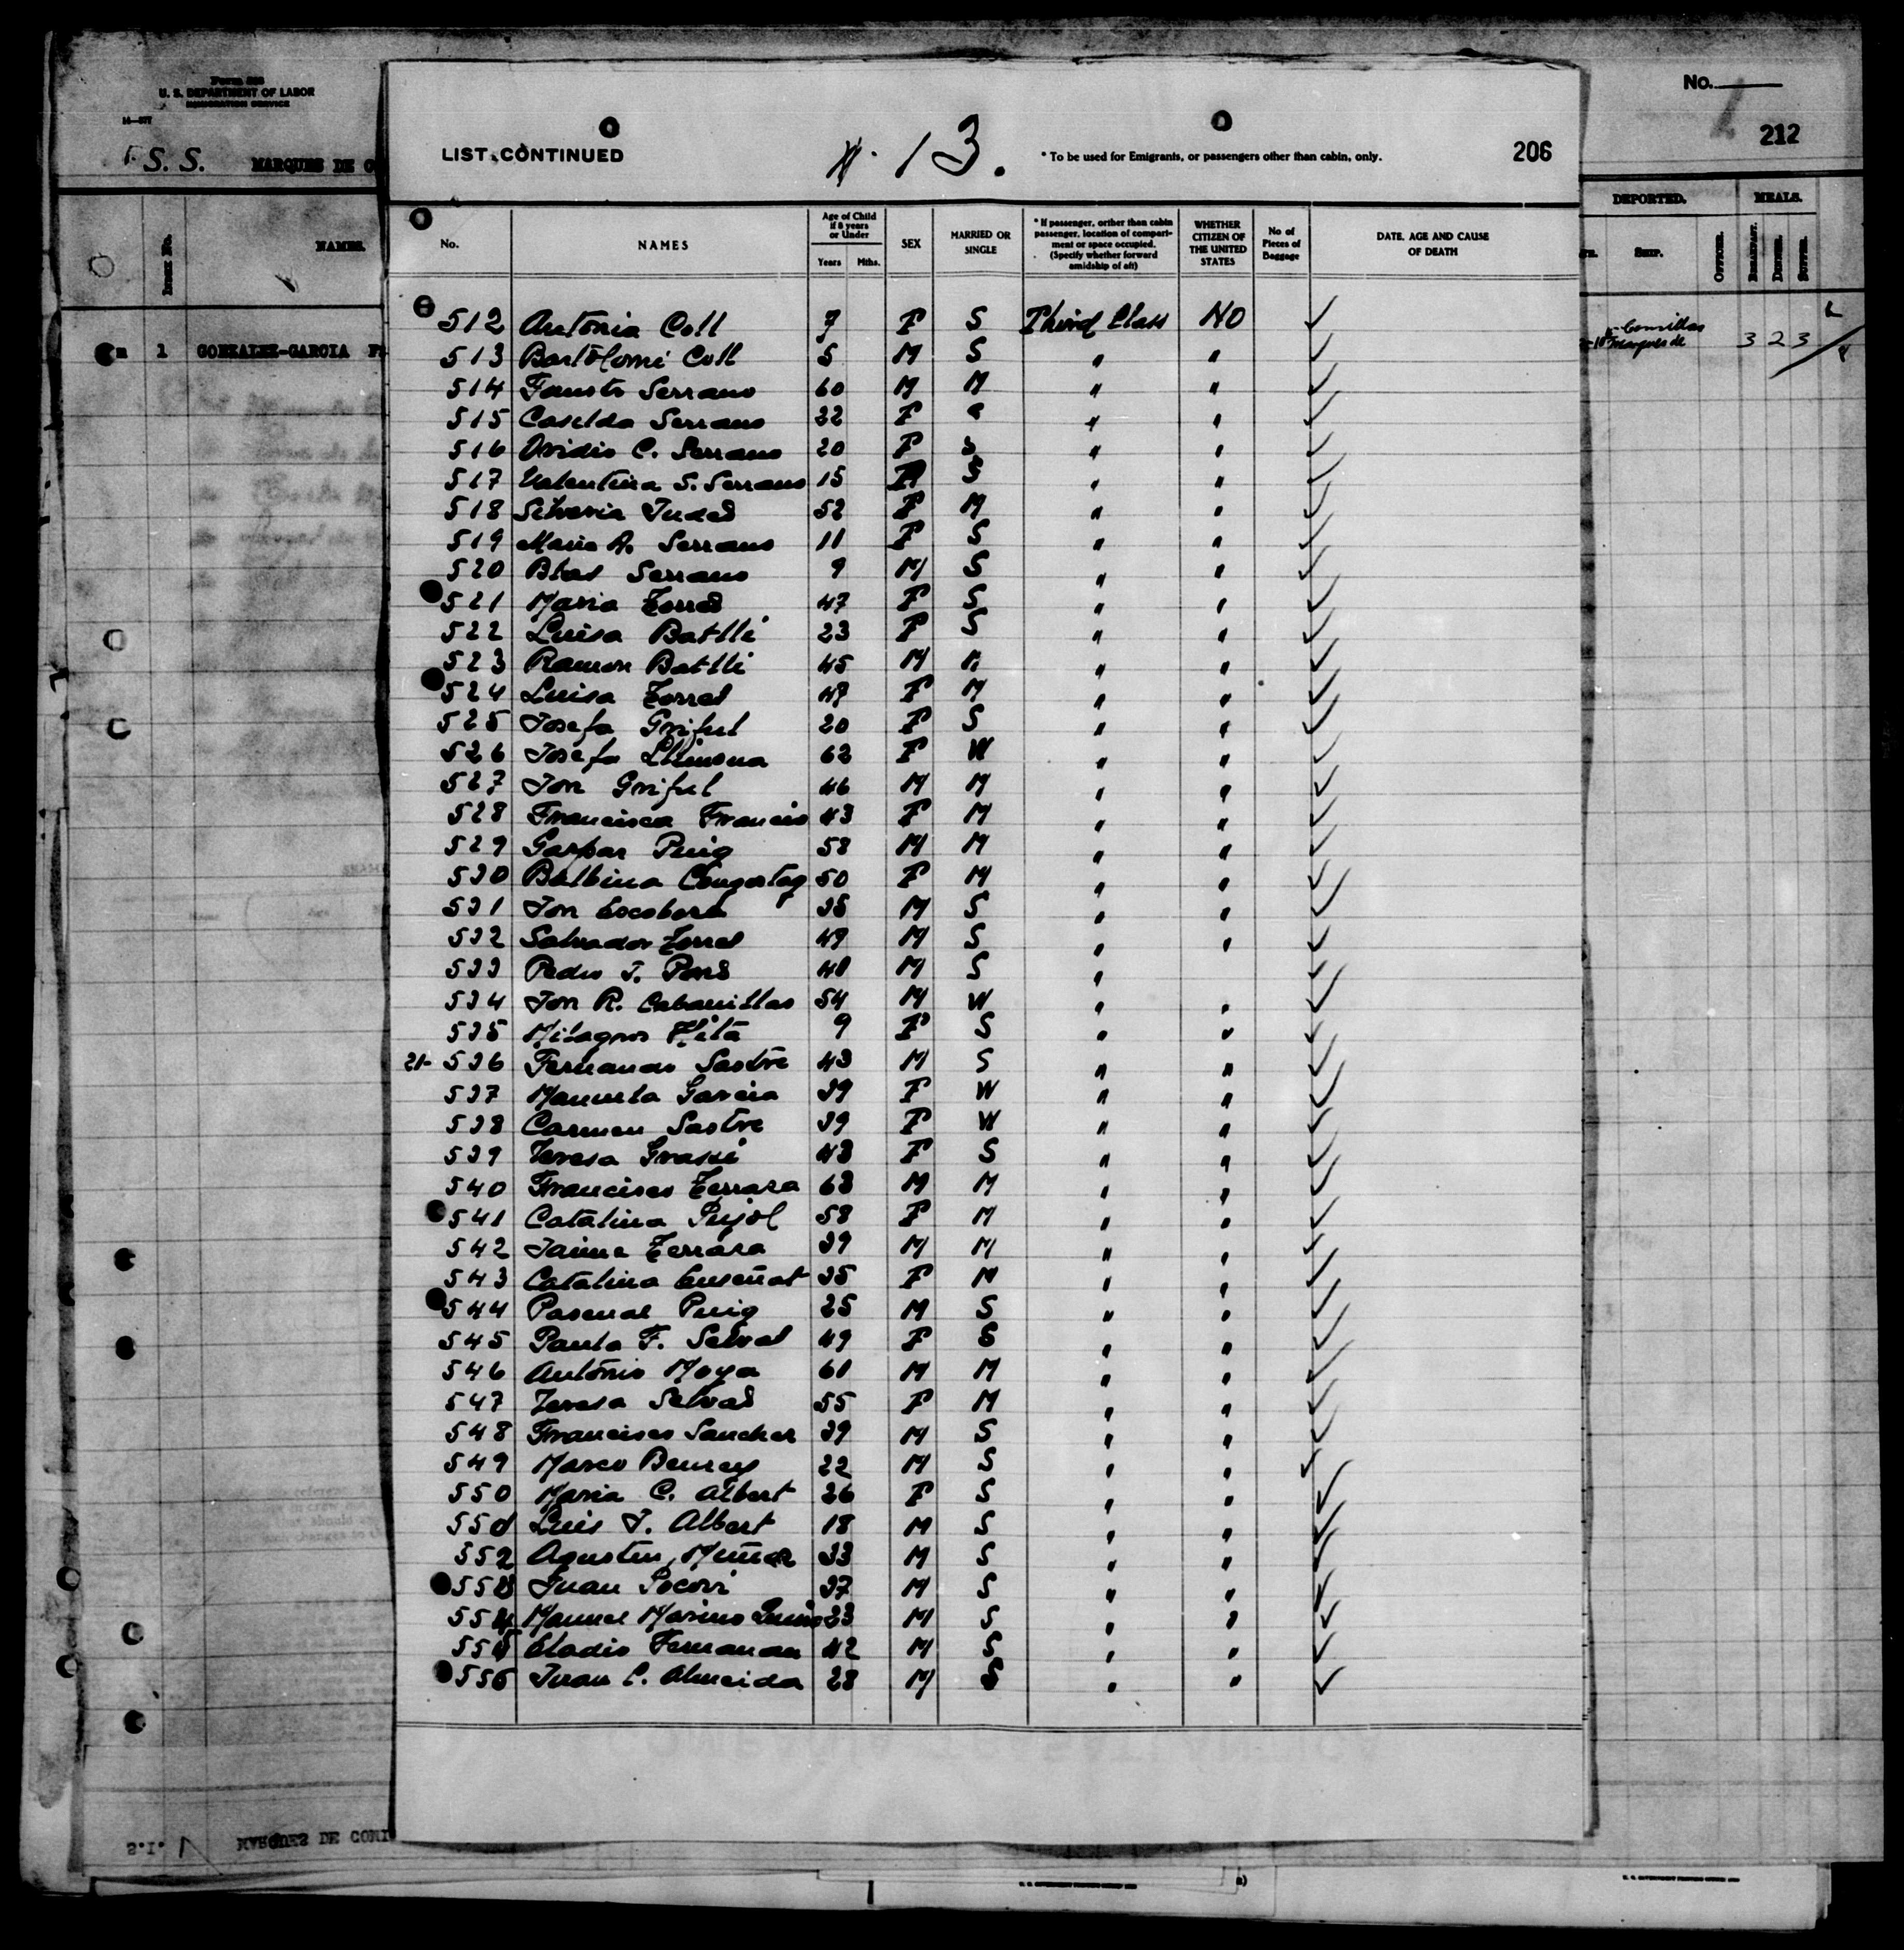 Form 566
U. S. DEPARTMENT OF LABOR
IMMIGRATION SERVICE
S. S. MARQUES DE C
Index No. NAMES.
1 GONZALEZ-GARCIA F
LIST CONTINUED
# 13.
* To be used for Emigrants, or passengers other than cabin, only.
206
No. NAMES Age of Child if 8 years or Under Years Mths. SEX MARRIED OR SINGLE * If passenger, orther than cabin passenger, location of compartment or space occupied. (Specify whether forward amidship of aft) WHETHER CITIZEN OF THE UNITED STATES No of Pieces of Baggage DATE, AGE AND CAUSE OF DEATH
512 Antonia Coll 7 F S Third Class NO ✓
513 Bartolomé Coll 5 M S " " ✓
514 Fausto Serrano 60 M M " " ✓
515 Caselda Serrano 22 F " " ✓
516 Ovidio C. Serrano 20 F S " " ✓
517 Valentina S. Serrano 15 F S " " ✓
518 Silveria Tudes 52 F M " " ✓
519 Maria A. Serrano 11 F S " " ✓
520 Blas Serrano 9 M S " " ✓
521 Maria Torres 47 F S " " ✓
522 Luisa Batlli 23 F S " " ✓
523 Ramon Batlli 45 M " " ✓
524 Luisa Torres 47 F M " " ✓
525 Josefa Griful 20 F S " " ✓
526 Josefa Llimona 62 F W " " ✓
527 Jon Griful 46 M M " " ✓
528 Francisca Francis 43 F M " " ✓
529 Gaspar Puig 58 M M " " ✓
530 Balbina 50 F M " " ✓
531 Jon Escobera 35 M S " " ✓
532 Salvador Torres 49 M S " " ✓
533 Pedro J. Pons 40 M S " ✓
534 Jon R. Cabanillas 54 M W " " ✓
535 Milagros Hita 9 F S " " ✓
21- 536 Fernando Sastre 43 M S " " ✓
537 Manuela Garcia 39 F W " " ✓
538 Carmen Sastre 39 F W " " ✓
539 Teresa Grassi 43 F S " " ✓
540 Francisco Terrasa 63 M M " " ✓
541 Catalina Pujol 58 F M " " ✓
542 Jaime Terrasa 39 M M " " ✓
543 Catalina Enseñat 35 F M " " ✓
544 Pascual Puig 25 M S " " ✓
545 Paula F. Selvas 49 F S " " ✓
546 Antonio Moya 61 M M " " ✓
547 Teresa Selvas 55 F M " " ✓
548 Francisco Sanchez 39 M S " " ✓
549 Marco 22 M S " " ✓
550 Maria C. Albert 26 F S " " ✓
551 Luis J. Albert 18 M S " " ✓
552 Agustin Muñoz 33 M S " " ✓
553 Juan Socori 37 M S " " ✓
554 Manuel Marino 33 M S " " ✓
555 Eladio Fernandez 42 M S " " ✓
556 Juan C. Almeida 28 M S " " ✓
No.
212
DEPORTED. MEALS.
Ship. Officer. Breakfast. Dinner. Supper.
Comillas
Marques de
3 2 3
S.I. MARQUES DE COMI